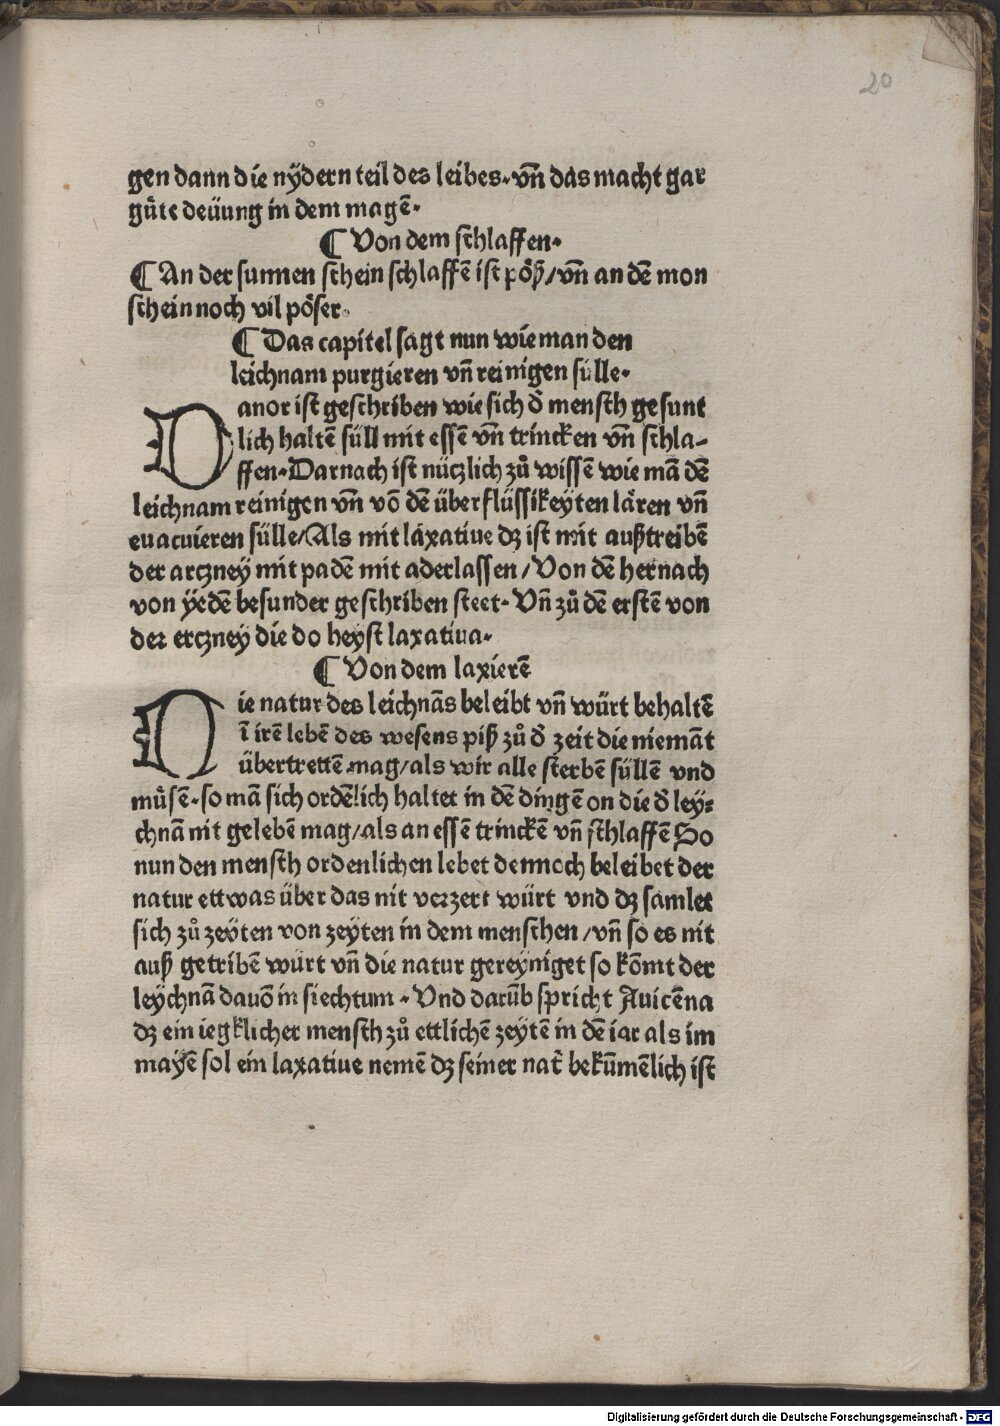 20
gen dann die nÿdern teil des leibes·vn̄ das macht gar
gůte deüung in dem magē·
¶ Von dem schlaffen·
¶ An der sunnen schein schlaffē ist pöß/vn̄ an dē mon
schein noch vil pöser·
¶ Das capitel sagt nun wie man den
leichnam purgieren vn̄ reinigen sülle·
Danor ist geschriben wie sich d̄ mensch gesunt
lich haltē süll mit essē vn̄ trincken vn̄ schla-
ffen·Darnach ist nüczlich zů wissē wie mā dē
leichnam reinigen vn̄ vō dē überflüssikeÿten lären vn̄
euacuieren sülle/Als mit laxatiue dz ist mit außtreibē
der arczneÿ mit padē mit aderlassen/Von dē hernach
von ÿedē besunder geschriben steet·Vn̄ zů dē erstē von
der erczneÿ die do heyst laxatiua·
¶ Von dem laxierē
Die natur des leichnās beleibt vn̄ würt behaltē
ī irē lebē des wesens piß zů d̄ zeit die niemāt
übertrettē mag/als wir alle sterbē süllē vnd
můsē·so mā sich ordēlich haltet in dē dingē on die d̄ leÿ-
chnā nit gelebē mag/als an essē trinckē vn̄ schlaffē So
nun den mensch ordenlichen lebet dennoch beleibet der
natur ettwas über das nit verzert würt vnd dz samlet
sich zů zeÿten von zeÿten in dem menschen/vn̄ so es nit
auß getribē würt vn̄ die natur gereÿniget so kōmt der
leÿchnā dauō in siechtum·Vnd darūb spricht Auicēna
dz ein iegklicher mensch zů ettlichē zeÿtē in dē iar als im
mayē sol ein laxatiue nemē dz seiner nat᷑ bekūmēlich ist
Digitalisierung gefördert durch die Deutsche Forschungsgemeinschaft - DFG